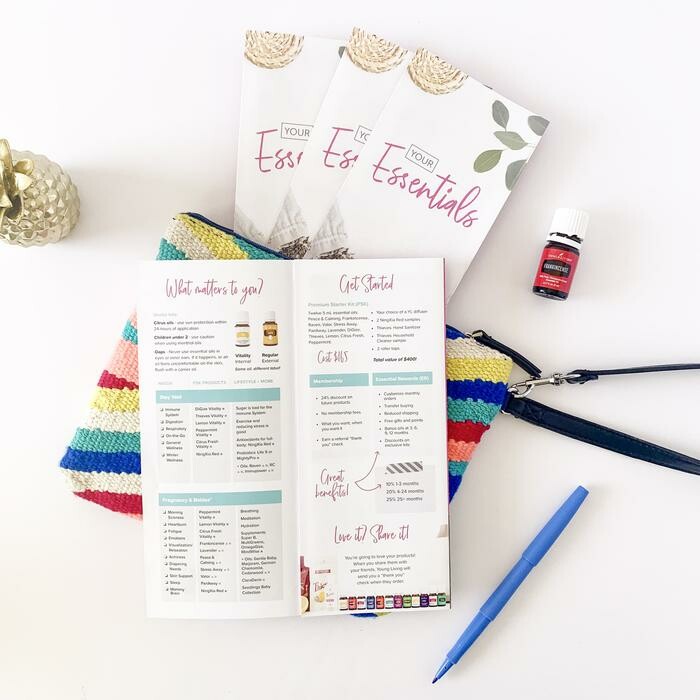 YOUR
Ess
YOUR
Ess
YOUR
Essentials
YOUNG LIVING
FRANKINCENSE
What matters to you?
Useful Info
Citrus oils - use sun protection within
24-hours of application
Children under 2 - use caution
when using menthol oils
Gaps - Never use essential oils in
eyes or inner ears. If it happens, or air
oil feels uncomfortable on the skin,
flush with a carrier oil.
Vitality
Internal
Regular
External
Same oil, different label!
NEEDS
PSK PRODUCTS
LIFESTYLE + MORE
Day Vest
Immune
System
Digestion
Respiratory
On-the-Go
General
Wellness
Winter
Wellness
DiGize Vitality
Thieves Vitality
Lemon Vitality
Peppermint
Vitality
Citrus Fresh
Vitality
NingXia Red
Sugar is bad for the
immune System
Exercise and
reducing stress is
good
Antioxidants for full
body: NingXia Red
Probiotics: Life 9 or
MightyPro
+ Oils: Raven, RC
Immupower
Pregnancy & Babies
Morning
Sickness
Heartburn
Fatigue
Emotions
Visualization/
Relaxation
Achiness
Diapering
Needs
Skin Support
Sleep
Mommy
Brain
Peppermint
Vitality
Lemon Vitality
Citrus Fresh
Vitality
Frankincense
Lavender
Peace &
Calming
Stress Away
Valor
PanAway
NingXia Red
Breathing
Meditation
Hydration
Supplements
Super B,
MultiGreens,
OmegaGize,
MindWise
+ Oils: Gentle Baby,
Marjoram, German
Chamomile,
Cedarwood
ClaraDerm
Seedlings Baby
Collection
Get Started
Premium Starter Kit (PSK)
Twelve 5 mL essential oils:
Peace & Calming, Frankincense,
Raven, Valor, Stress Away,
PanAway, Lavender, DiGize,
Thieves, Lemon, Citrus Fresh,
Peppermint
Cost $165
Your choice of a YL diffuser
2 NingXia Red samples
Thieves Hand Sanitizer
Thieves Household
Cleaner sample
2 roller tops
Total value of $400!
Membership
24% discount on
future products
No membership fees
What you want, when
you want it
Earn a referral "thank
you" check
Essential Rewards (ER)
Customize monthly
orders
Transfer buying
Reduced shipping
Free gifts and points
Bonus oils at 3, 6,
9, 12 months
Discounts on
exclusive kits
Great
benefits!
10% 1-3 months
20% 4-24 months
25% 25+ months
Love it? Share it!
You're going to love your products!
When you share them with
your friends, Young Living will
send you a "thank you"
check when they order.